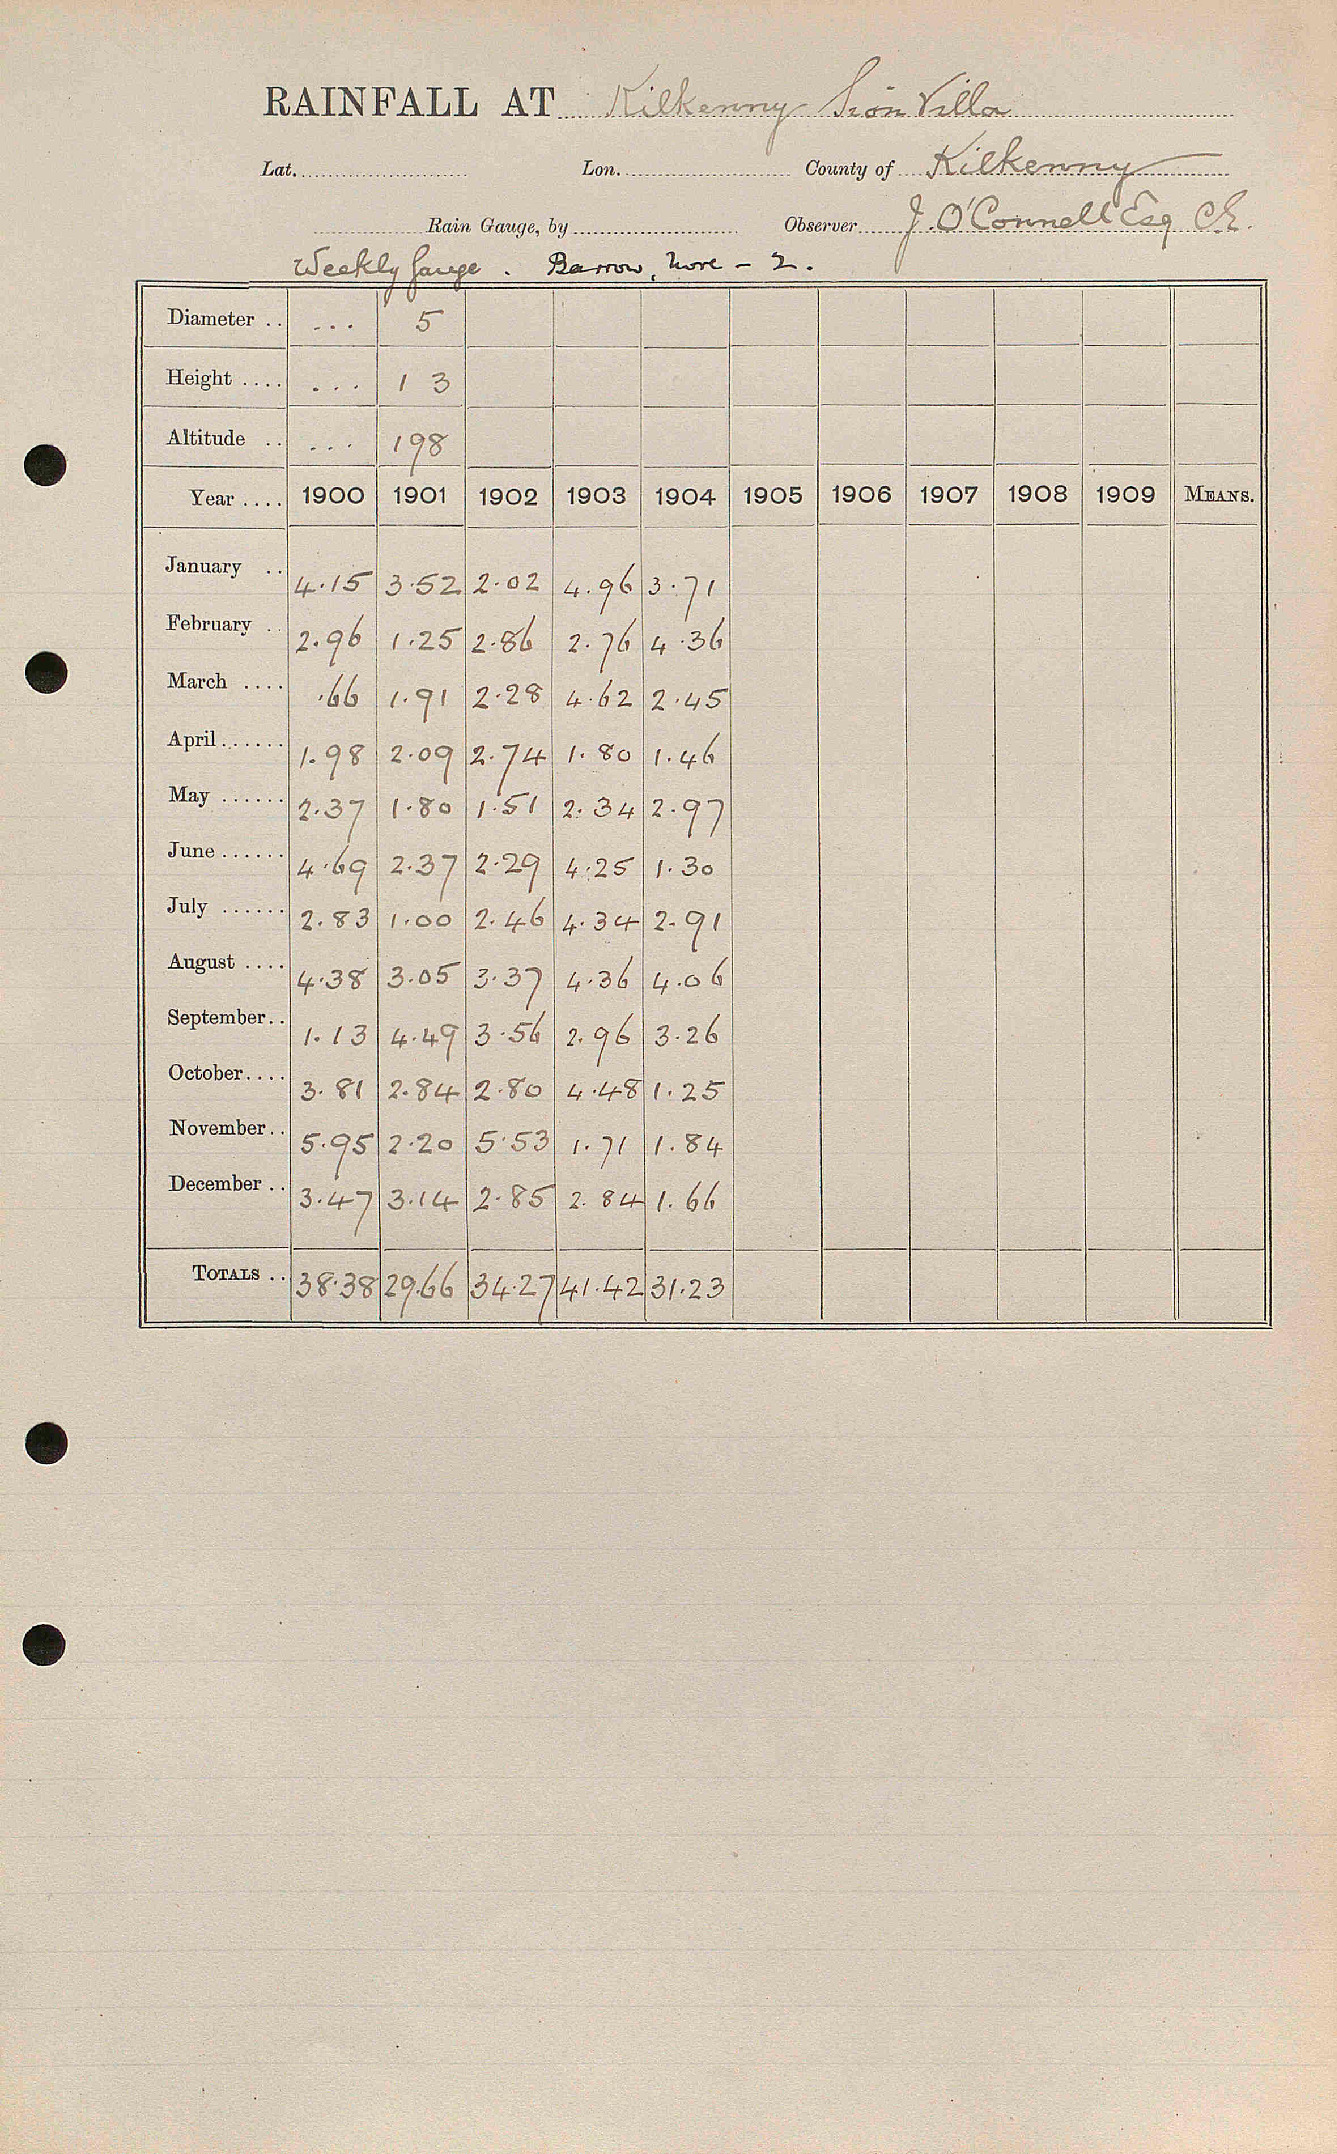 RAINFALL AT Kilkenny Sion Villa
Lat. Lon. County of Kilkenny
Rain Gauge, by Observer J. O'Connell Esq C.E.
Weekly Gauge . Barrow, Nore - 2.
Diameter .. ... 5
Height .... ... 1 3
Altitude .. ... 198
Year .... 1900 1901 1902 1903 1904 1905 1906 1907 1908 1909 MEANS.
January .. 4.15 3.52 2.02 4.96 3.71
February .. 2.96 1.25 2.86 2.76 4.36
March .... .66 1.91 2.28 4.62 2.45
April...... 1.98 2.09 2.74 1.80 1.46
May ...... 2.37 1.80 1.51 2.34 2.97
June ...... 4.69 2.37 2.29 4.25 1.30
July ...... 2.83 1.00 2.46 4.34 2.91
August .... 4.38 3.05 3.37 4.36 4.06
September.. 1.13 4.49 3.56 2.96 3.26
October.... 3.81 2.84 2.80 4.48 1.25
November.. 5.95 2.20 5.53 1.71 1.84
December .. 3.47 3.14 2.85 2.84 1.66
TOTALS .. 38.38 29.66 34.27 41.42 31.23